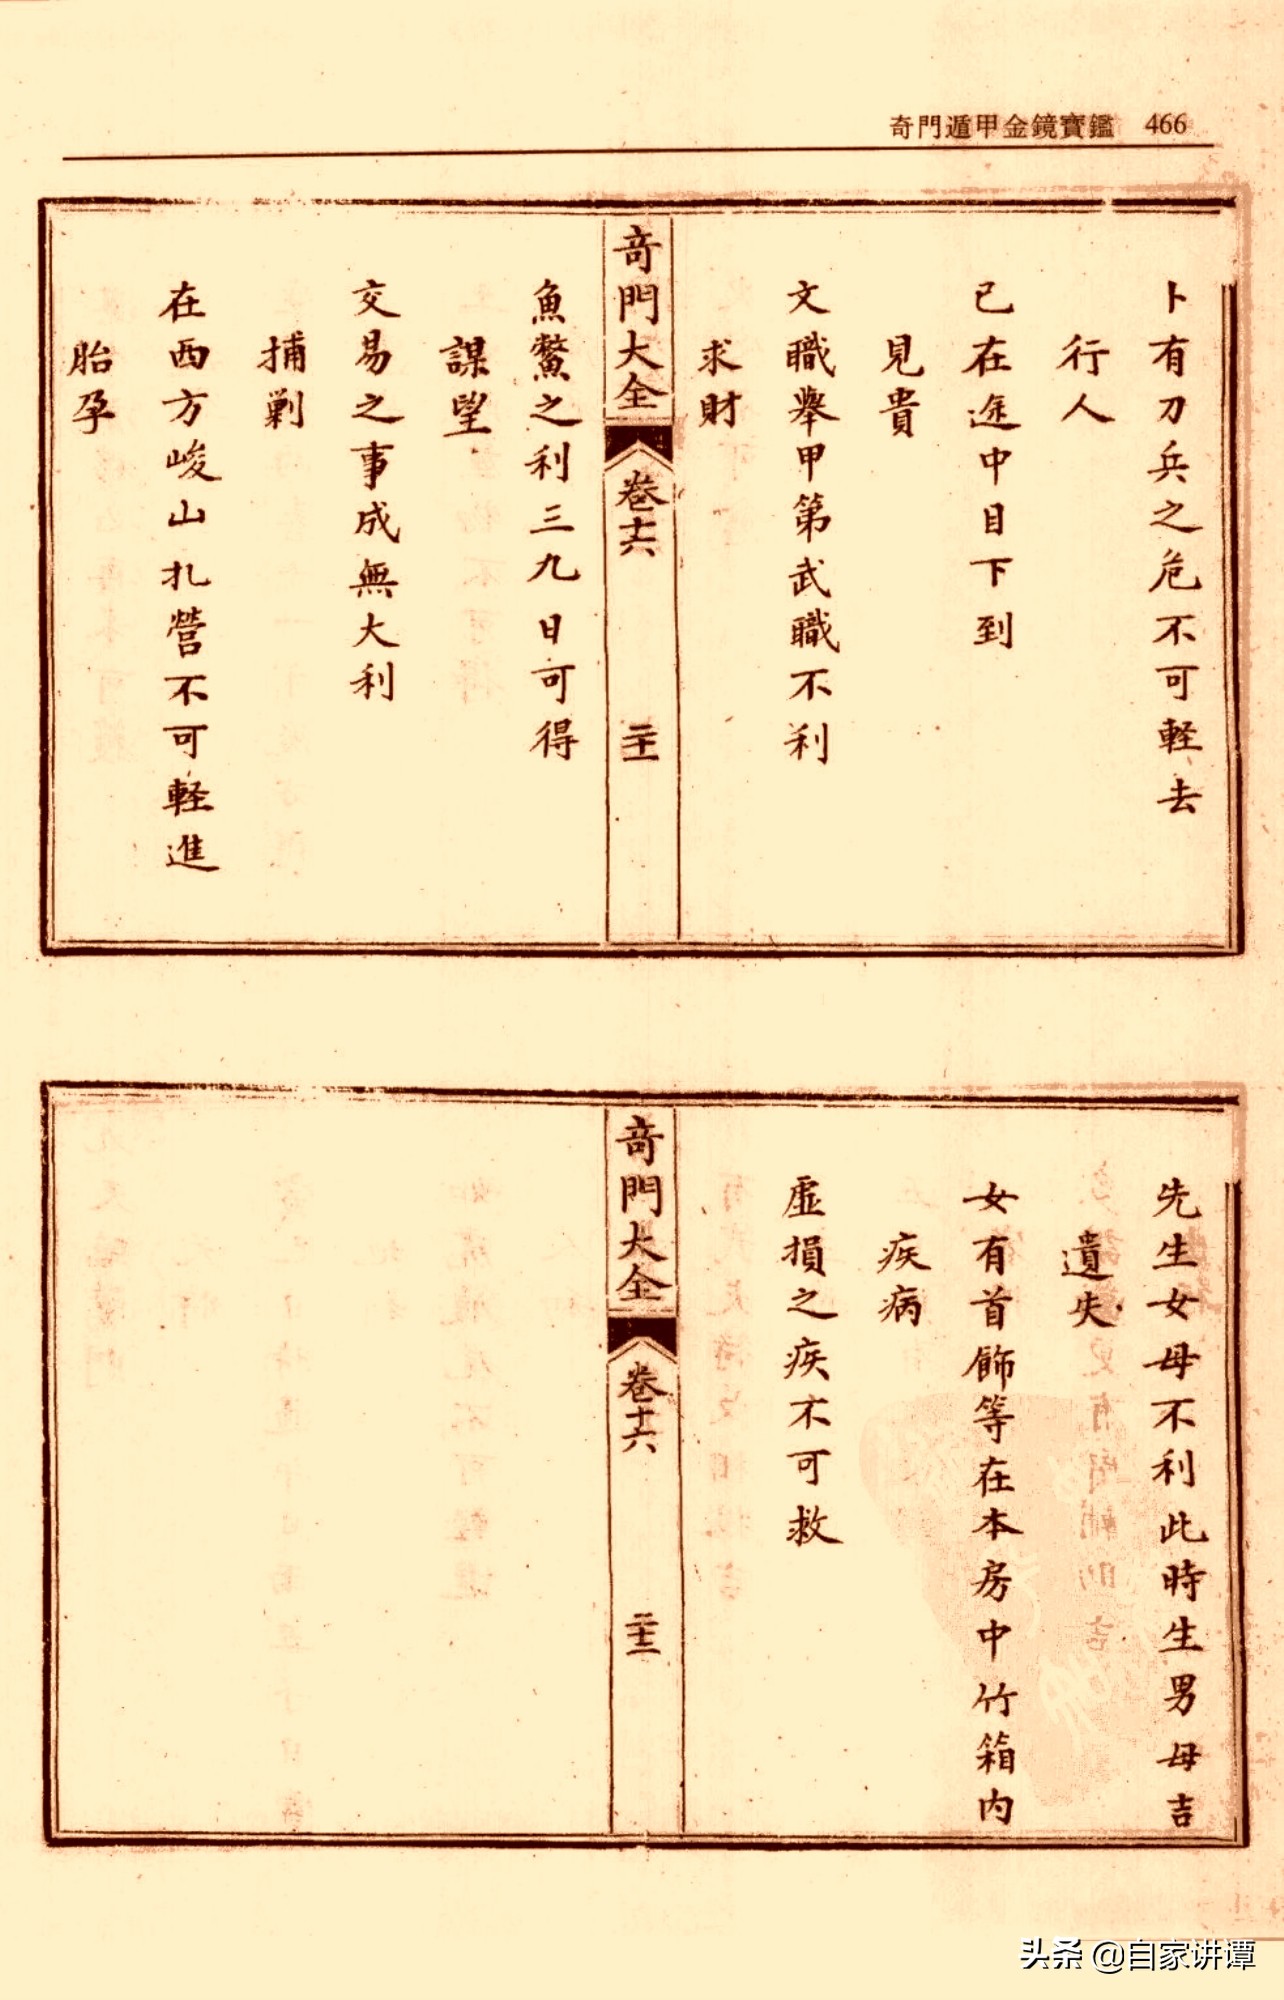 奇門遁甲金鏡寶鑑 466
卜有刀兵之危不可軽去
行人
已在途中目下到
見貴
文職舉甲第武職不利
求財
奇門大全 卷十六 二十一
魚鱉之利三九日可得
謀望
交易之事成無大利
捕剿
在西方峻山扎營不可軽進
胎孕
先生女母不利此時生男母吉
遺失
女有首飾等在本房中竹箱内
疾病
虛損之疾不可救
奇門大全 卷十六 二十二
头条 @自家讲谭